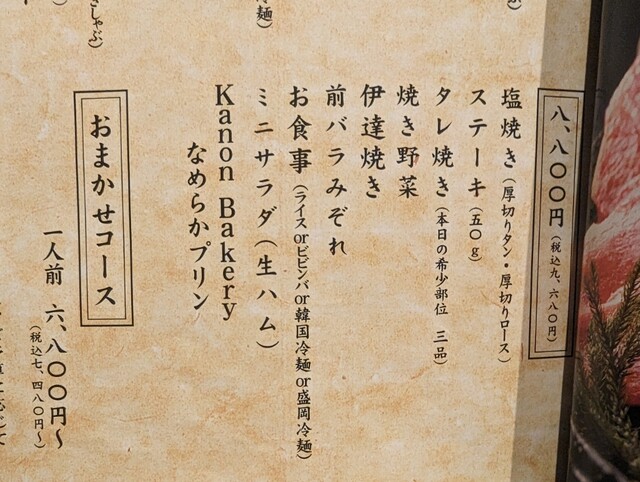 八、八〇〇円(税込九、六八〇円)
塩焼き(厚切りタン・厚切りロース)
ステーキ(五〇g)
タレ焼き(本日の希少部位 三品)
焼き野菜
伊達焼き
前バラみぞれ
お食事(ライスorビビンバor韓国冷麺or盛岡冷麺)
ミニサラダ(生ハム)
Kanon Bakery
なめらかプリン
おまかせコース
一人前 六、八〇〇円〜
(税込七、四八〇円〜)